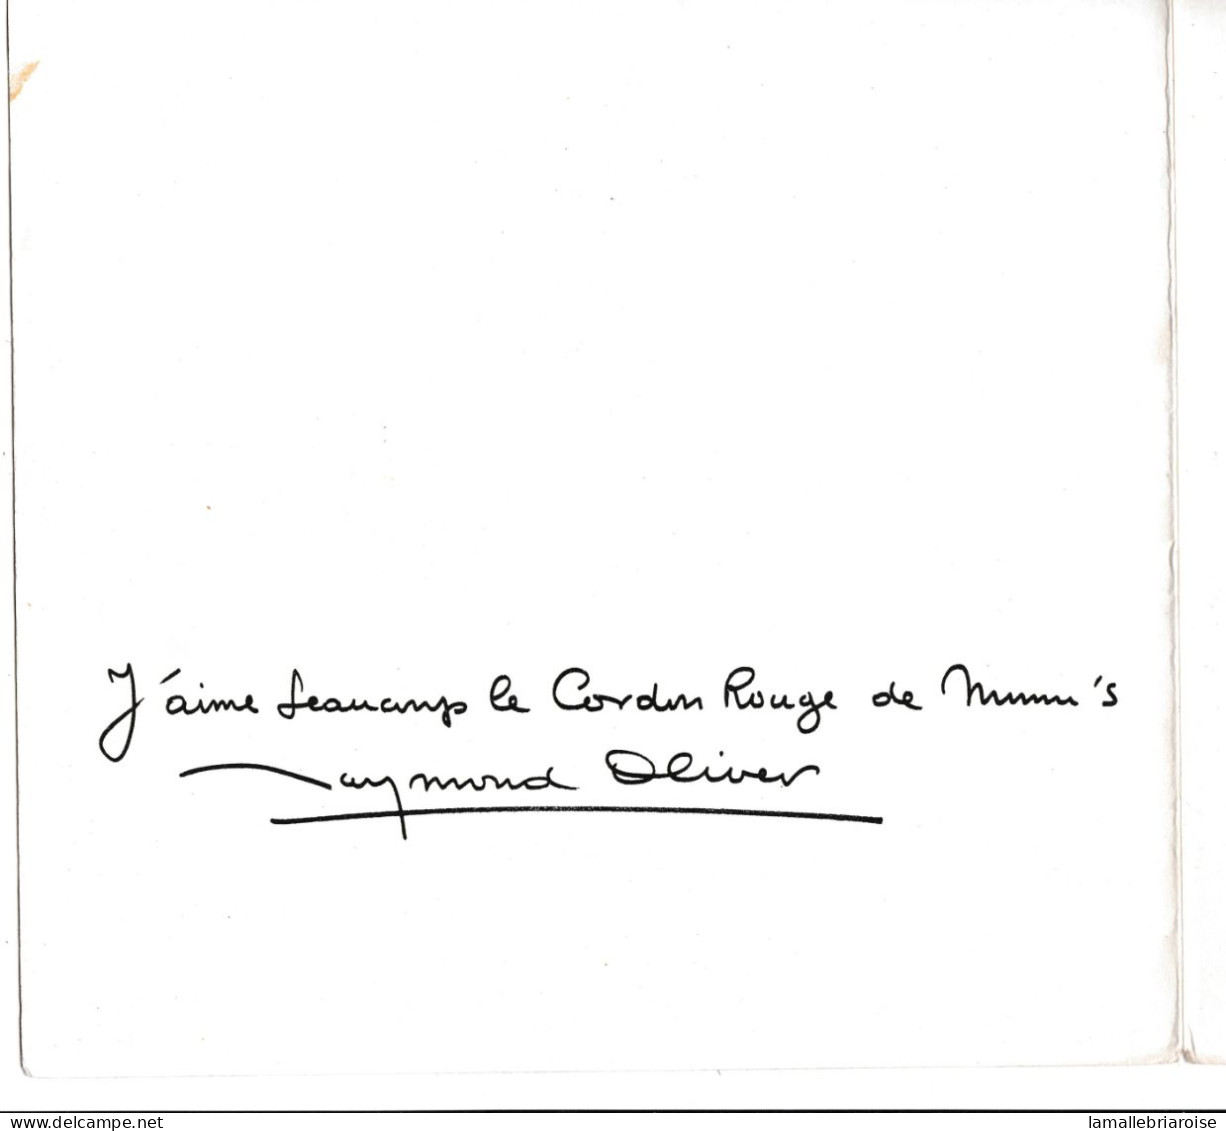 J'aime beaucoup le Cordon Rouge de Mumm's
Raymond Oliver
www.delcampe.net
lamallebriaroise